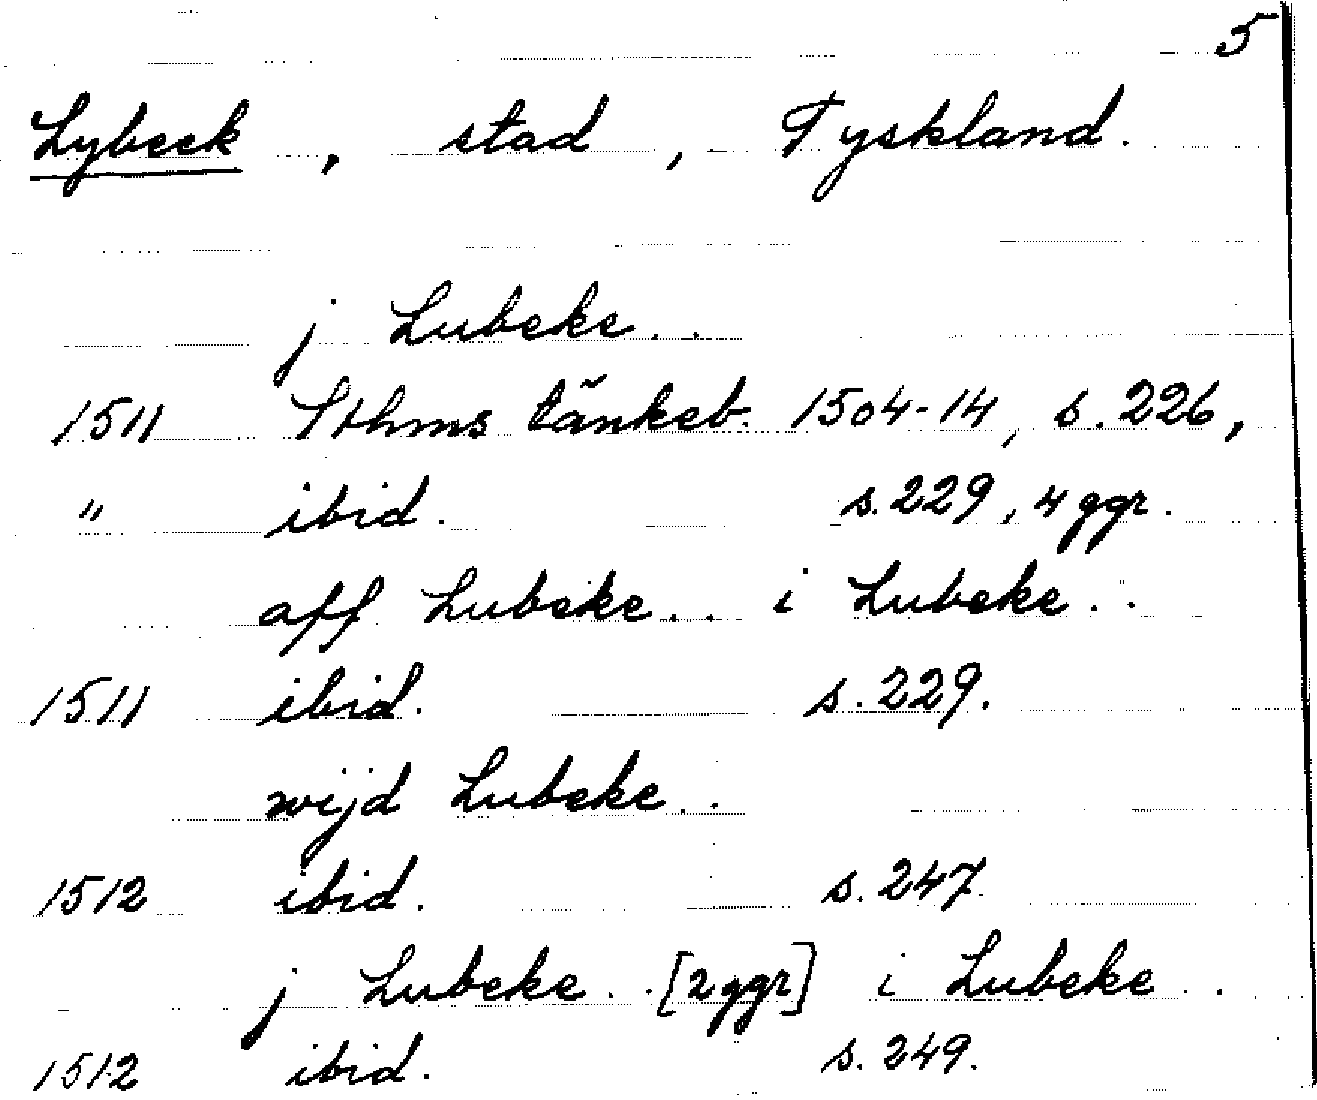 5
Lybeck, stad, Tyskland.
j Lubeke..
1511 Sthms tänkeb. 1504-14, s. 226,
" ibid. s. 229, 4 ggr.
aff Lubeke.. i Lubeke..
1511 ibid. s. 229.
wijd Lubeke..
1512 ibid. s. 247
j Lubeke.. [2 ggr] i Lubeke..
1512 ibid. s. 249.